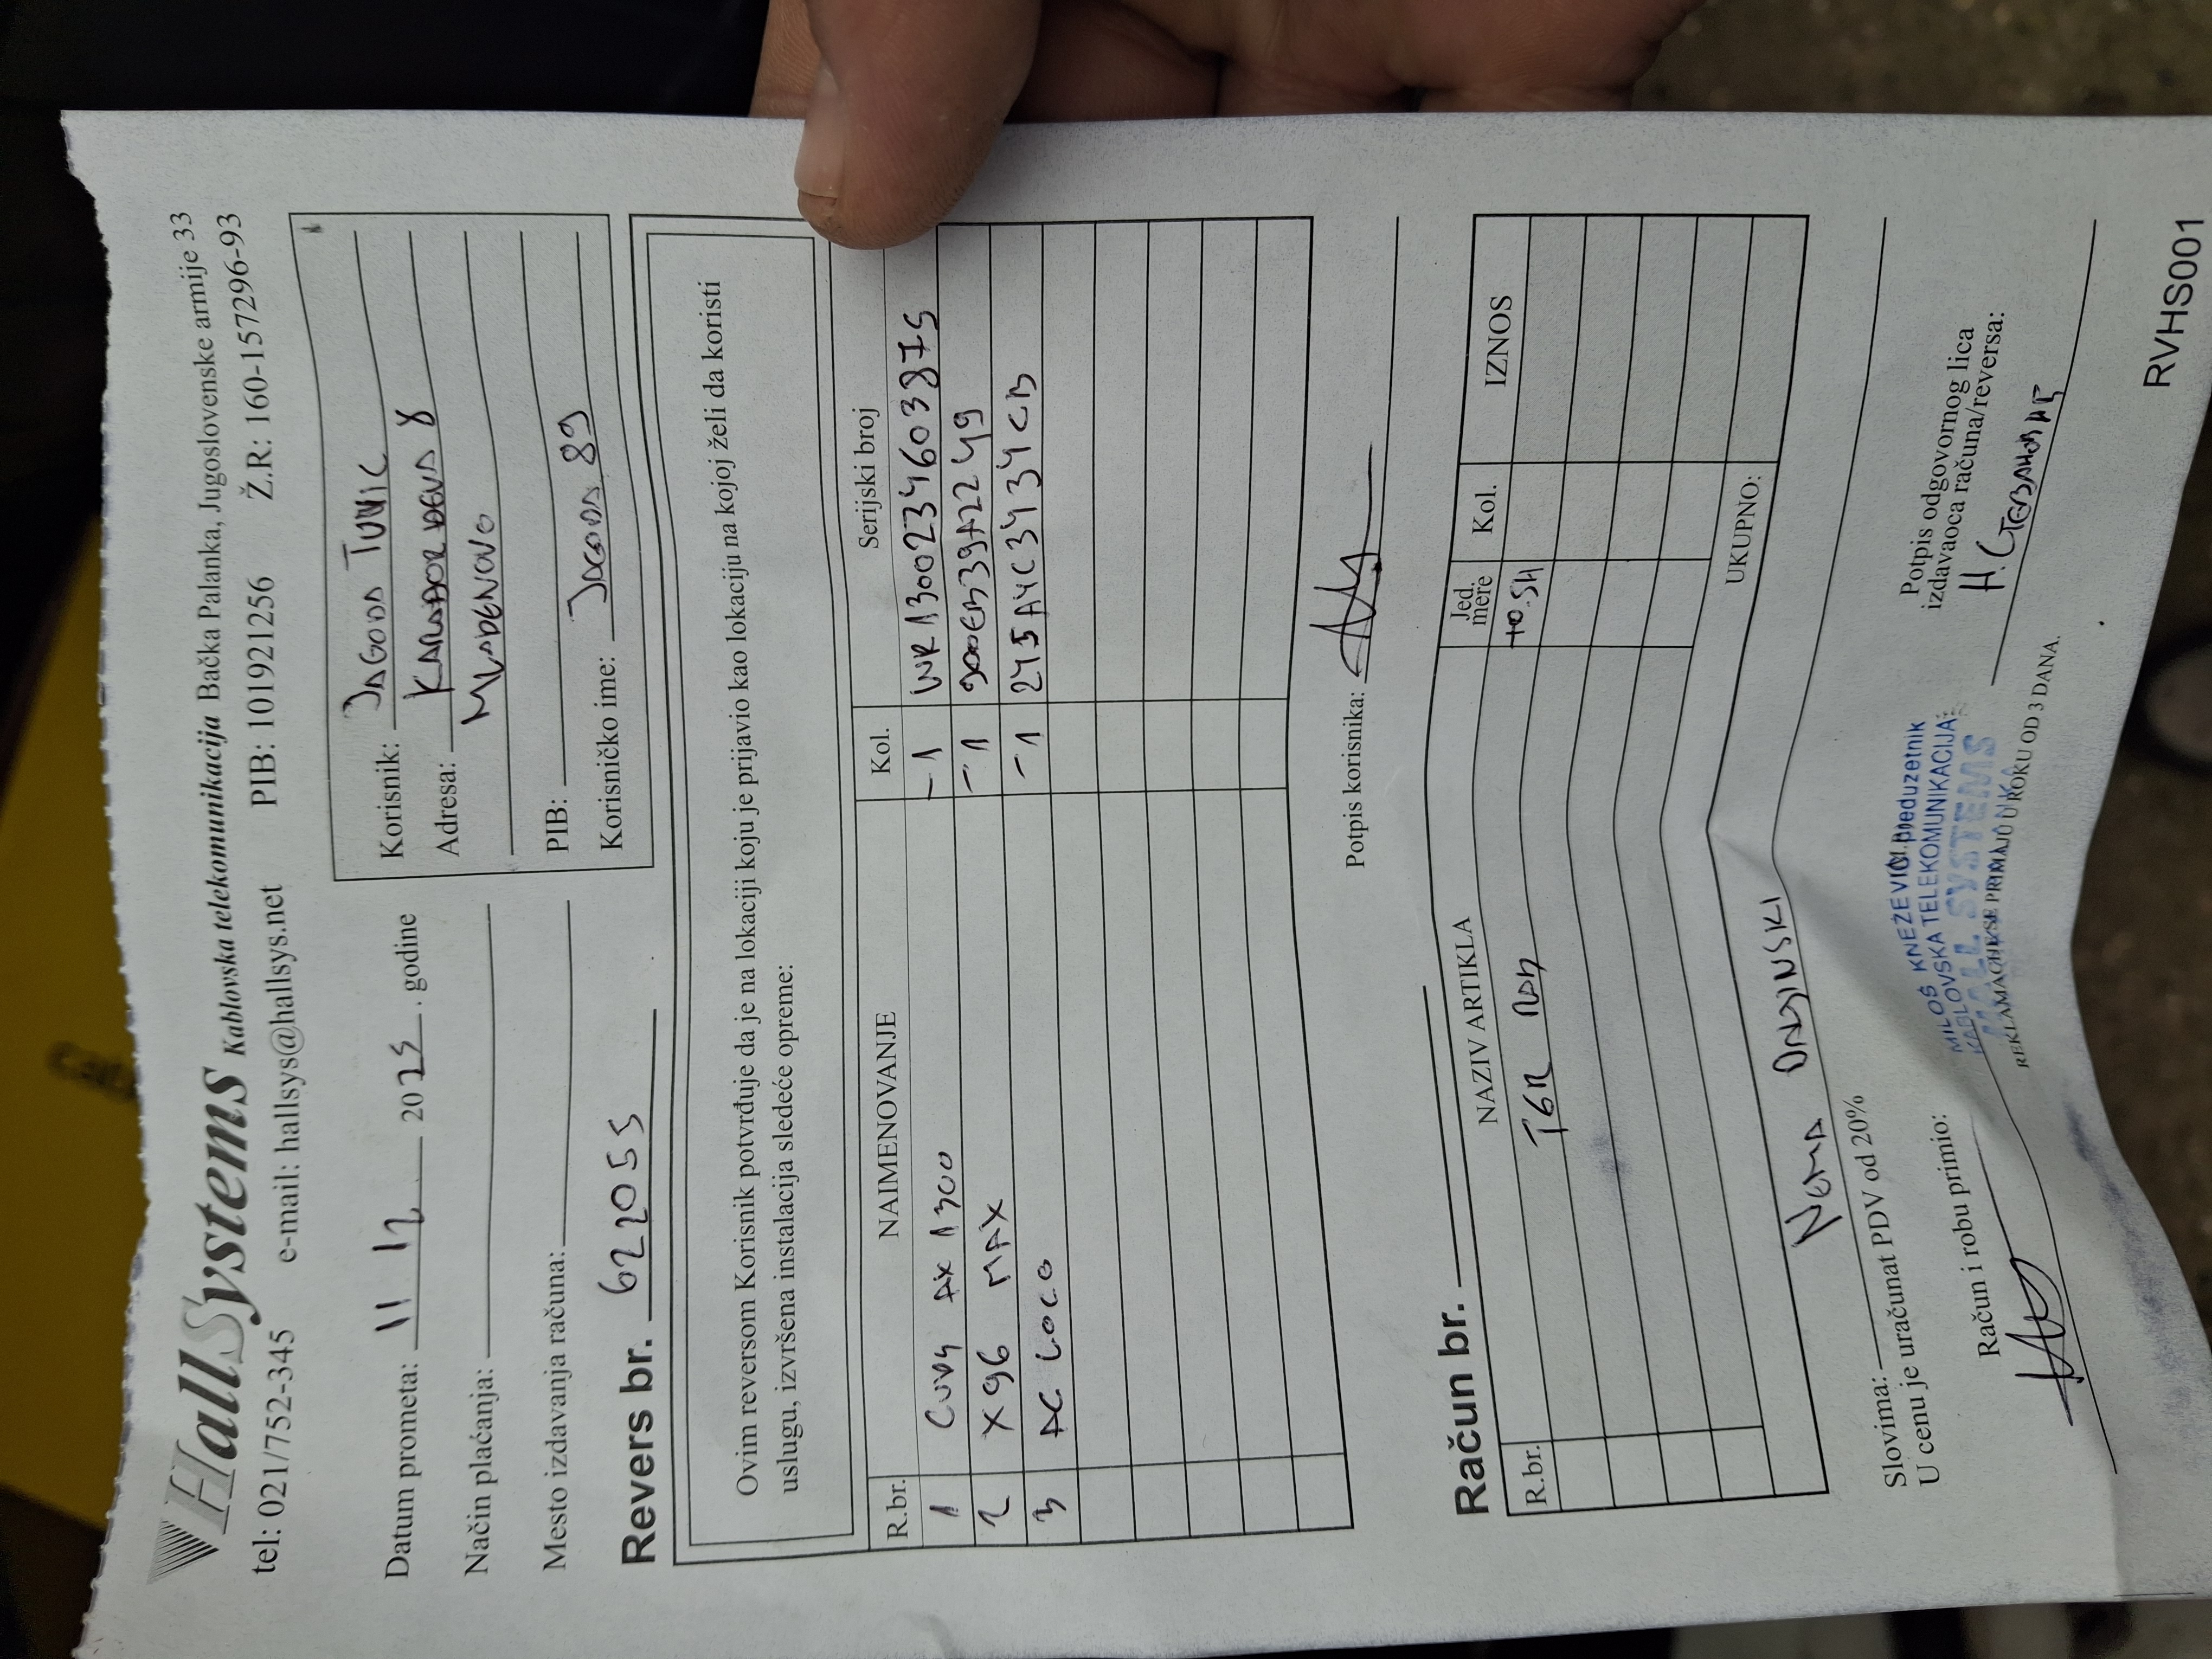 HallSystems Kablovska telekomunikacija Bačka Palanka, Jugoslovenske armije 33
tel: 021/752-345 e-mail: hallsys@hallsys.net PIB: 101921256 Ž.R.: 160-157296-93
Datum prometa: 11 12 2025. godine
Način plaćanja:
Mesto izdavanja računa:
Korisnik: JAGODA TUNIC
Adresa: 8
MLADENOVO
PIB:
Korisničko ime: JAGODA 89
Revers br. 622055
Ovim reversom Korisnik potvrđuje da je na lokaciji koju je prijavio kao lokaciju na kojoj želi da koristi
uslugu, izvršena instalacija sledeće opreme:
R.br. NAIMENOVANJE Kol. Serijski broj
1 CUDY AX 1300 -1 WR13002346033875
2 X96 MAX -1
3 AC LOCO -1 245A4C3434CB
Potpis korisnika:
Račun br.
R.br. NAZIV ARTIKLA Jed. mere Kol. IZNOS
UKUPNO:
NEMA
Slovima:
U cenu je uračunat PDV od 20%
Račun i robu primio:
M.P.
MILOŠ KNEŽEVIĆ preduzetnik
KABLOVSKA TELEKOMUNIKACIJA
HALL SYSTEMS
BAČKA PALANKA
REKLAMACIJE SE PRIMAJU U ROKU OD 3 DANA.
Potpis odgovornog lica
izdavaoca računa/reversa:
RVHS001